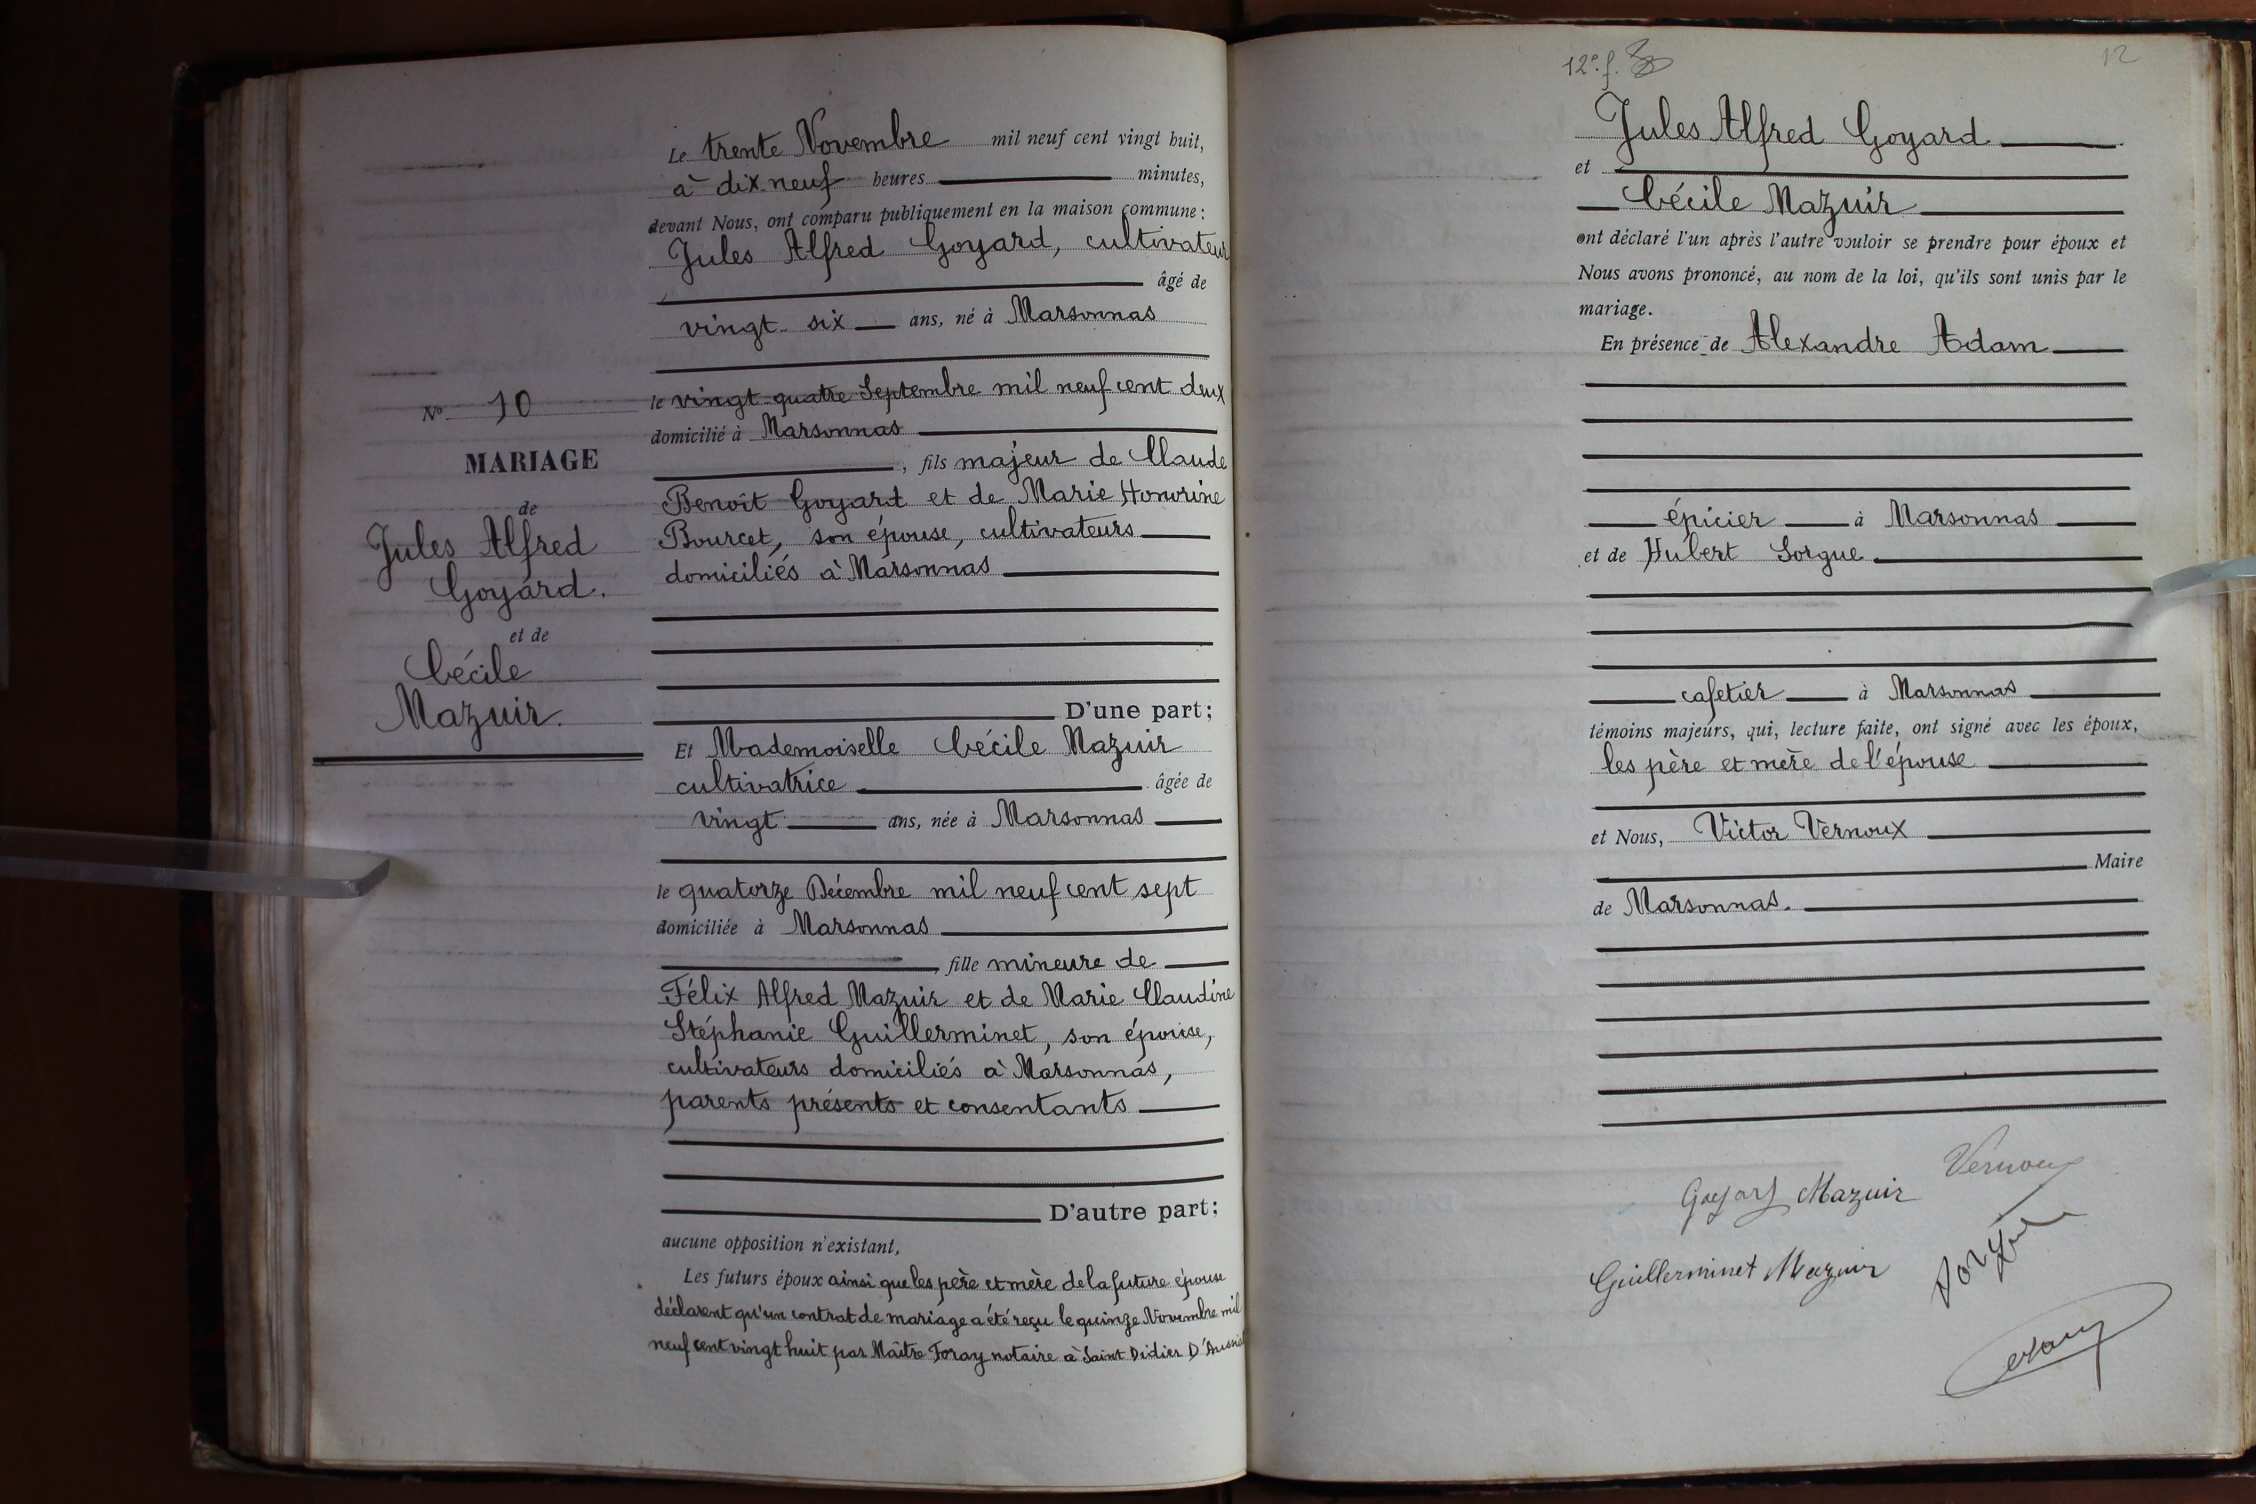 Le trente Novembre mil neuf cent vingt huit,
à dix-neuf heures minutes,
devant Nous, ont comparu publiquement en la maison commune :
Jules Alfred Goyard, cultivateur
âgé de
vingt-six ans, né à Marsonnas
le vingt-quatre Septembre mil neuf cent deux
domicilié à Marsonnas
, fils majeur de Claude
Benoît Goyard et de Marie Honorine
Bourcet, son épouse, cultivateurs
domiciliés à Marsonnas
D'une part;
No 10
MARIAGE
de
Jules Alfred
Goyard.
et de
Cécile
Mazuir.
Et Mademoiselle Cécile Mazuir
cultivatrice âgée de
vingt ans, née à Marsonnas
le quatorze Décembre mil neuf cent sept
domiciliée à Marsonnas
, fille mineure de
Félix Alfred Mazuir et de Marie Claudine
Stéphanie Guillerminet, son épouse,
cultivateurs domiciliés à Marsonnas,
parents présents et consentants
D'autre part;
aucune opposition n'existant,
Les futurs époux ainsi que les père et mère de la future épouse
déclarent qu'un contrat de mariage a été reçu le quinze Novembre mil
neuf cent vingt huit par Maître Foray notaire à Saint Didier
12e. f.
12
Jules Alfred Goyard
et
Cécile Mazuir
ont déclaré l'un après l'autre vouloir se prendre pour époux et
Nous avons prononcé, au nom de la loi, qu'ils sont unis par le
mariage.
En présence de Alexandre Adam
épicier à Marsonnas
et de Hubert Sorgue
cafetier à Marsonnas
témoins majeurs, qui, lecture faite, ont signé avec les époux,
les père et mère de l'épouse
et Nous, Victor Vernoux
Maire
de Marsonnas.
Vernoux
Goyard Mazuir
Guillerminet Mazuir
Sorgue